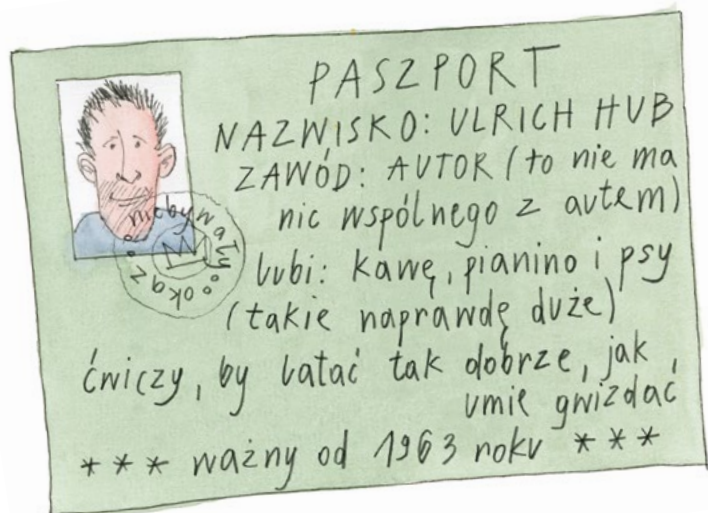 PASZPORT
NAZWISKO: ULRICH HUB
ZAWÓD: AUTOR (to nie ma
nic wspólnego z autem)
lubi: kawę, pianino i psy
(takie naprawdę duże)
ćwiczy, by latać tak dobrze, jak
umie gwizdać
*** ważny od 1963 roku ***
niebywały okaz